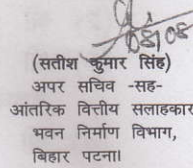 08/08
(सतीश कुमार सिंह)
अपर सचिव -सह-
आंतरिक वित्तीय सलाहकार
भवन निर्माण विभाग,
बिहार पटना।